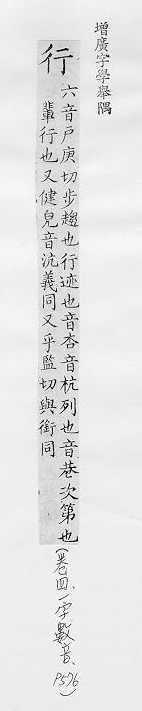 增廣字學舉隅
行
六音戶庚切步趨也行迹也音杏音杭列也音巷次第也
輩行也又健兒音沆義同又乎監切與銜同
(卷四、一字數音、P576)